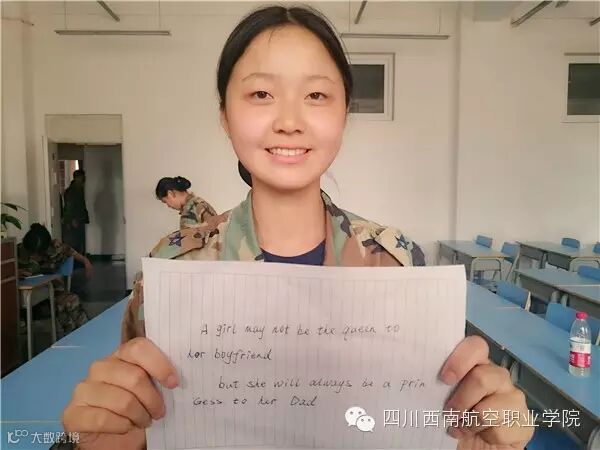 A girl may not be the queen to
her boyfriend
but she will always be a prin
cess to her Dad
四川西南航空职业学院
大数跨境